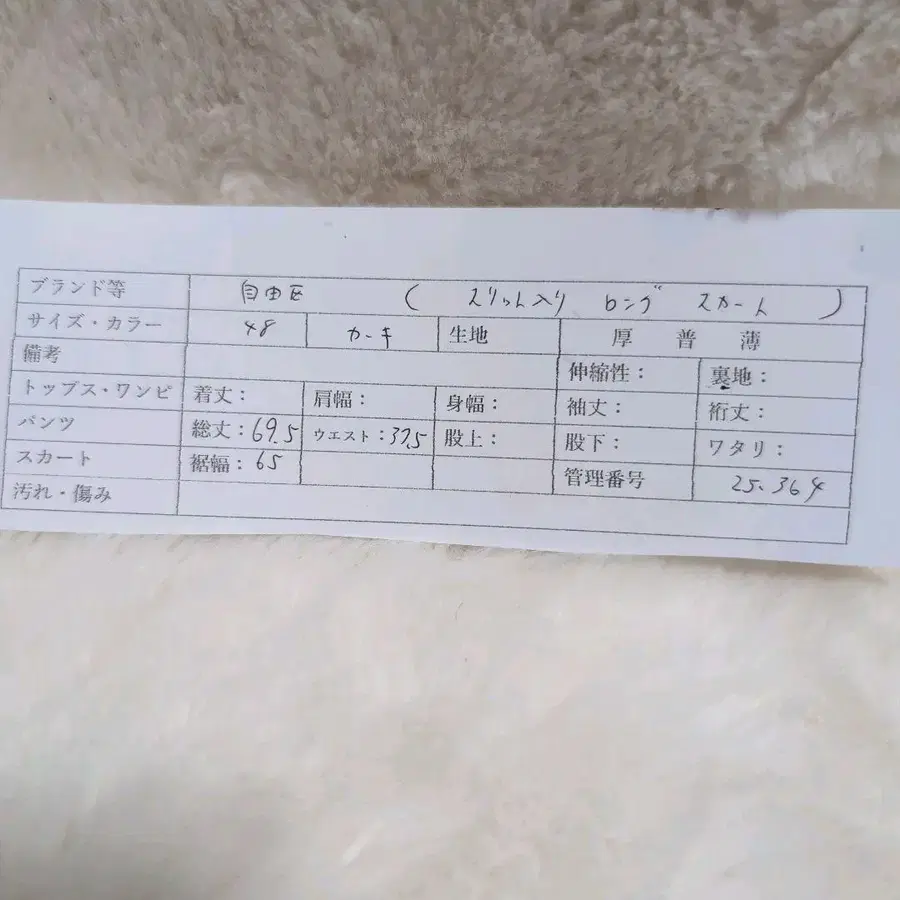 ブランド等 自由区 ( スリット入り ロング スカート )
サイズ・カラー 48 カーキ 生地 厚 普 薄
備考 伸縮性： 裏地：
トップス・ワンピ 着丈： 肩幅： 身幅： 袖丈： 裄丈：
パンツ 総丈：69.5 ウエスト：37.5 股上： 股下： ワタリ：
スカート 裾幅：65 管理番号 25.364
汚れ・傷み